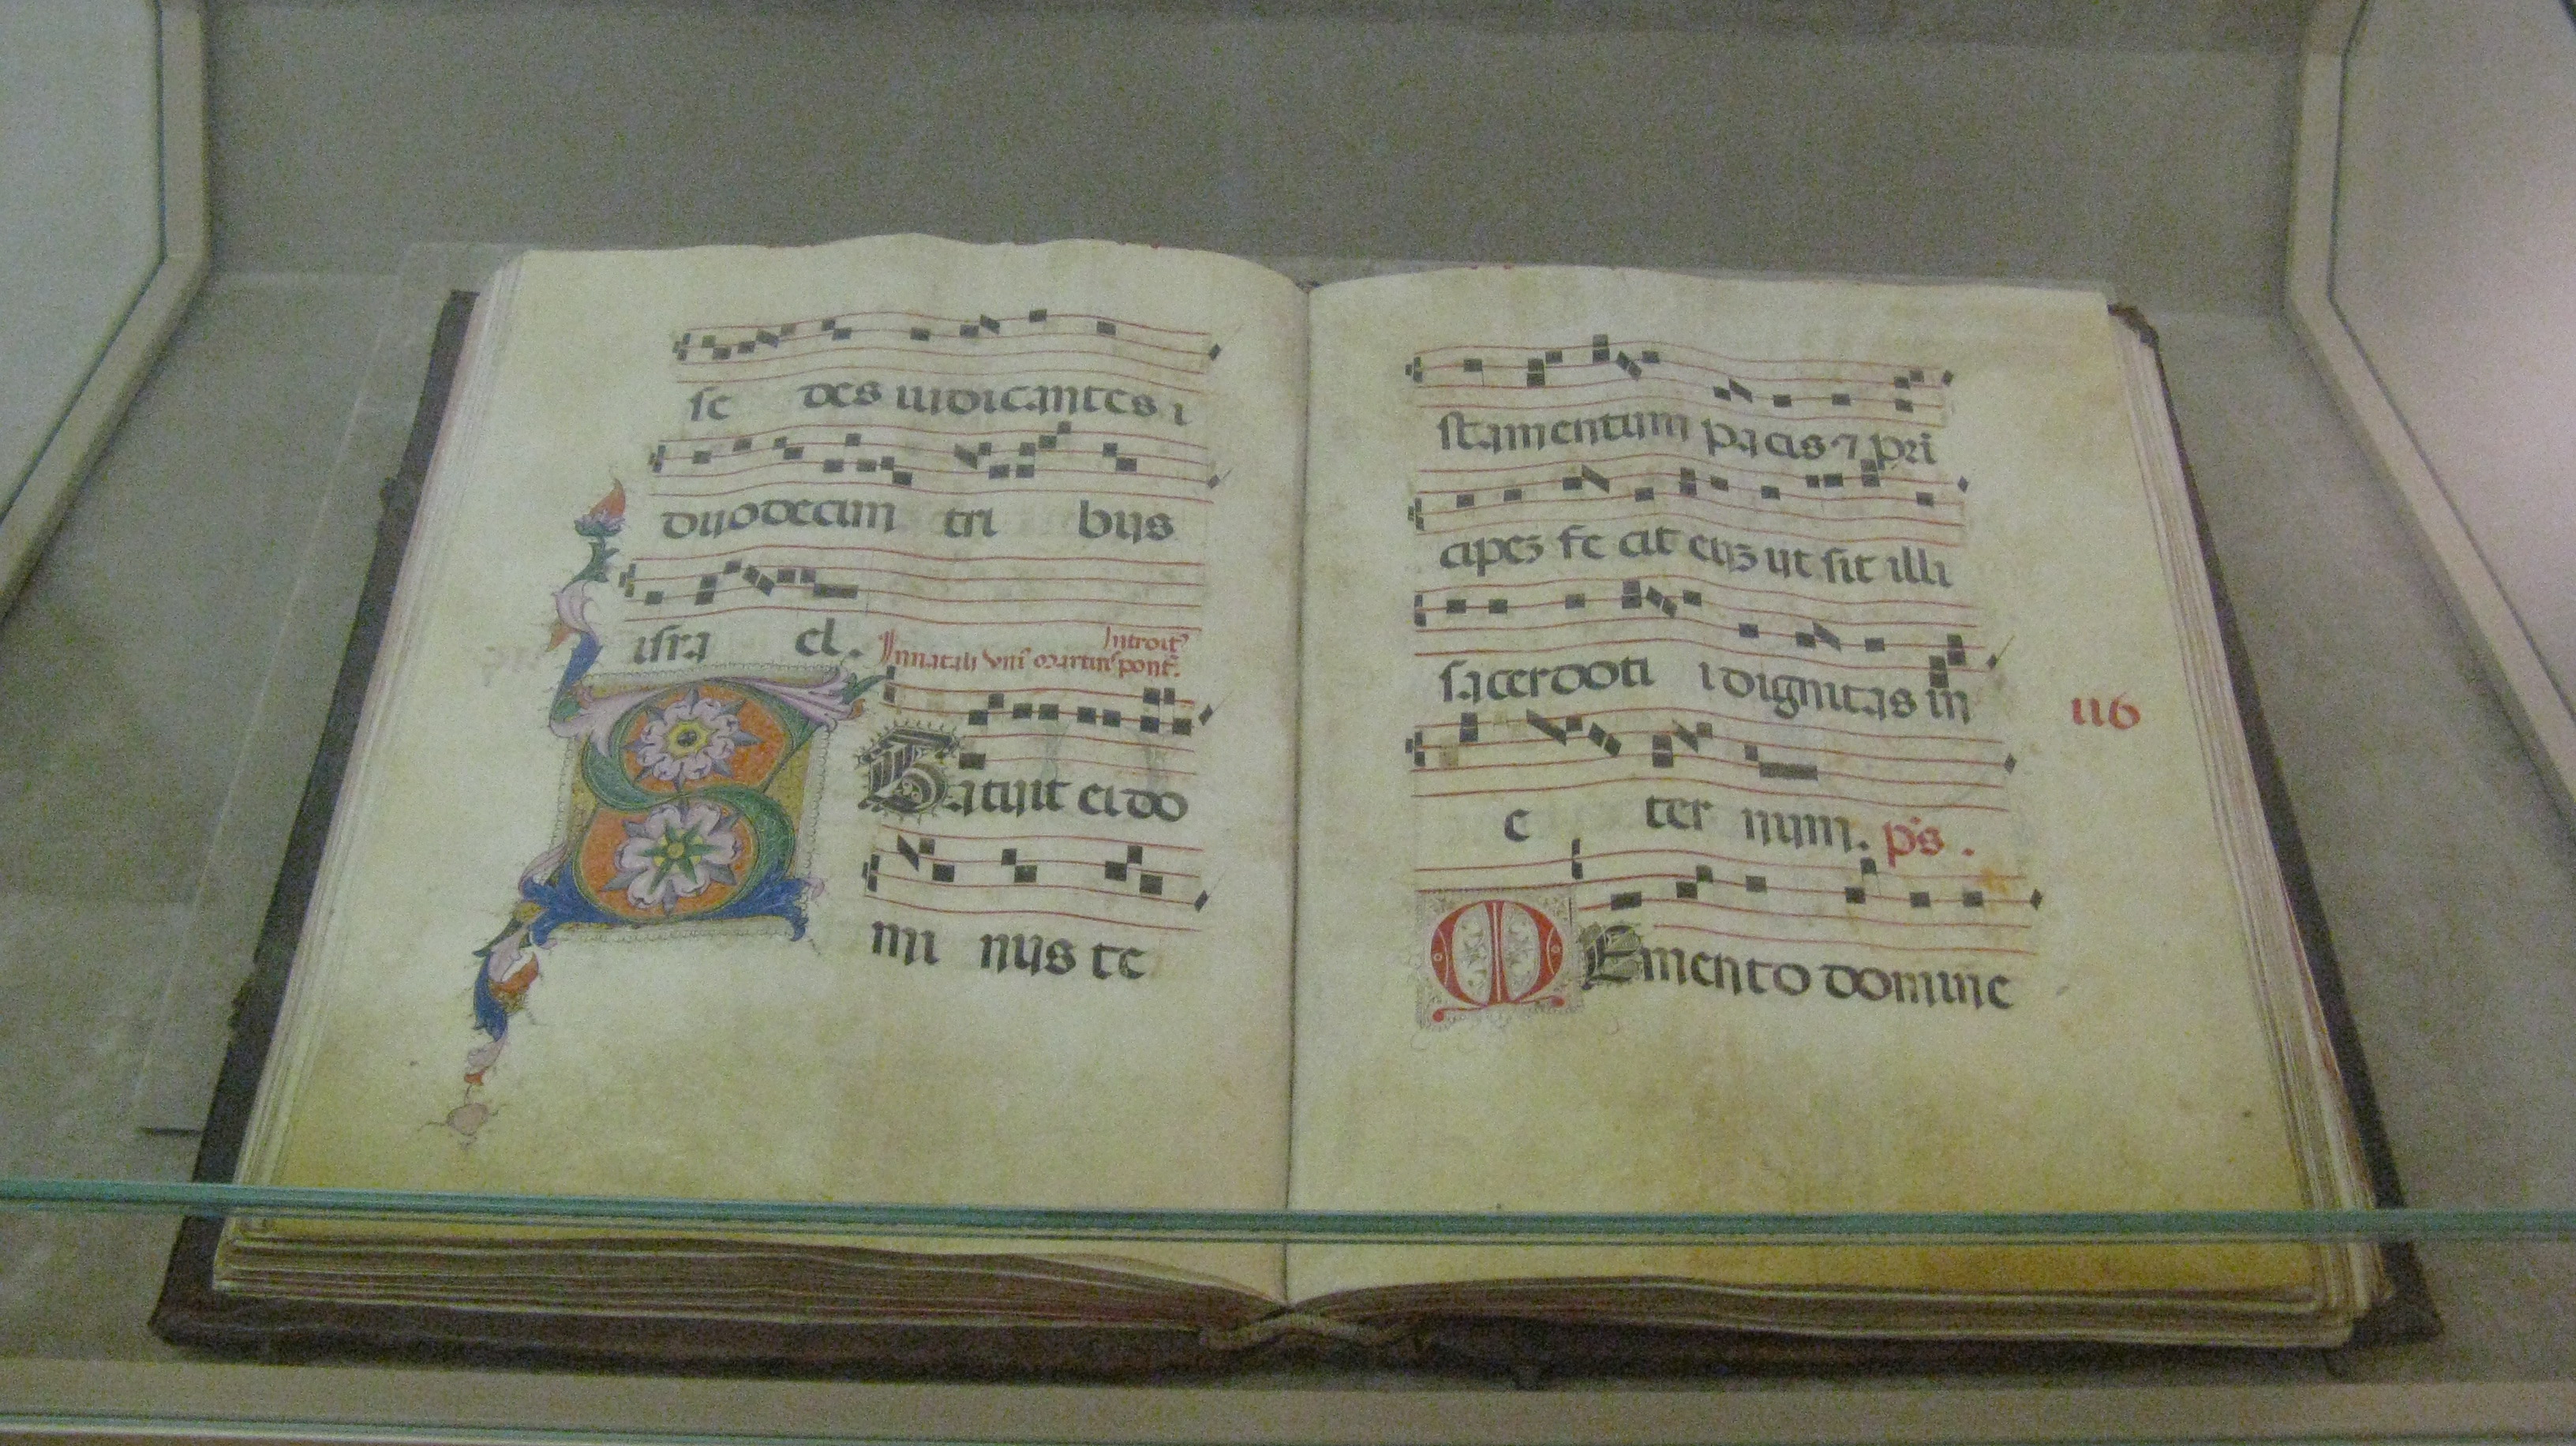 se des iudicantes i
duodecim tri bus
isra el.
Introit⁹
In natali sc̄i martini pont̄.
STatuit ei do
mi nus te
stamentum pacis ⁊ pri
cipeʒ fe cit euʒ ut sit illi
sacerdoti i dignitas in
116
e ter num. ps.
MEmento domine